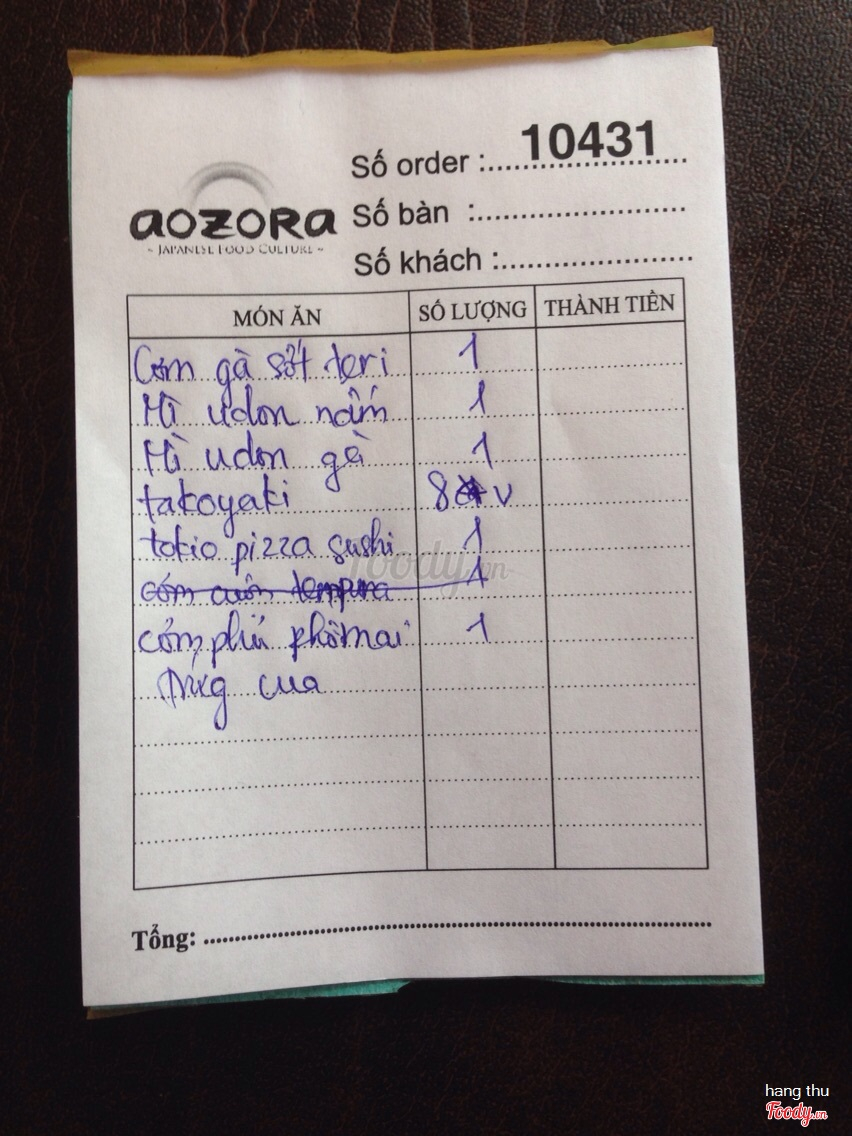 Số order :.......10431...
Số bàn :......................
Số khách :....................
aozora
~ JAPANESE FOOD CULTURE ~
MÓN ĂN SỐ LƯỢNG THÀNH TIỀN
Cơm gà sốt teri 1
Mì udon nấm 1
Mì udon gà 1
takoyaki 8 v
tokio pizza sushi 1
cơm cuộn tempura 1
cơm phủ phômai 1
trứng cua
Tổng: ......................................................
Foody.vn
hang thu
Foody.vn